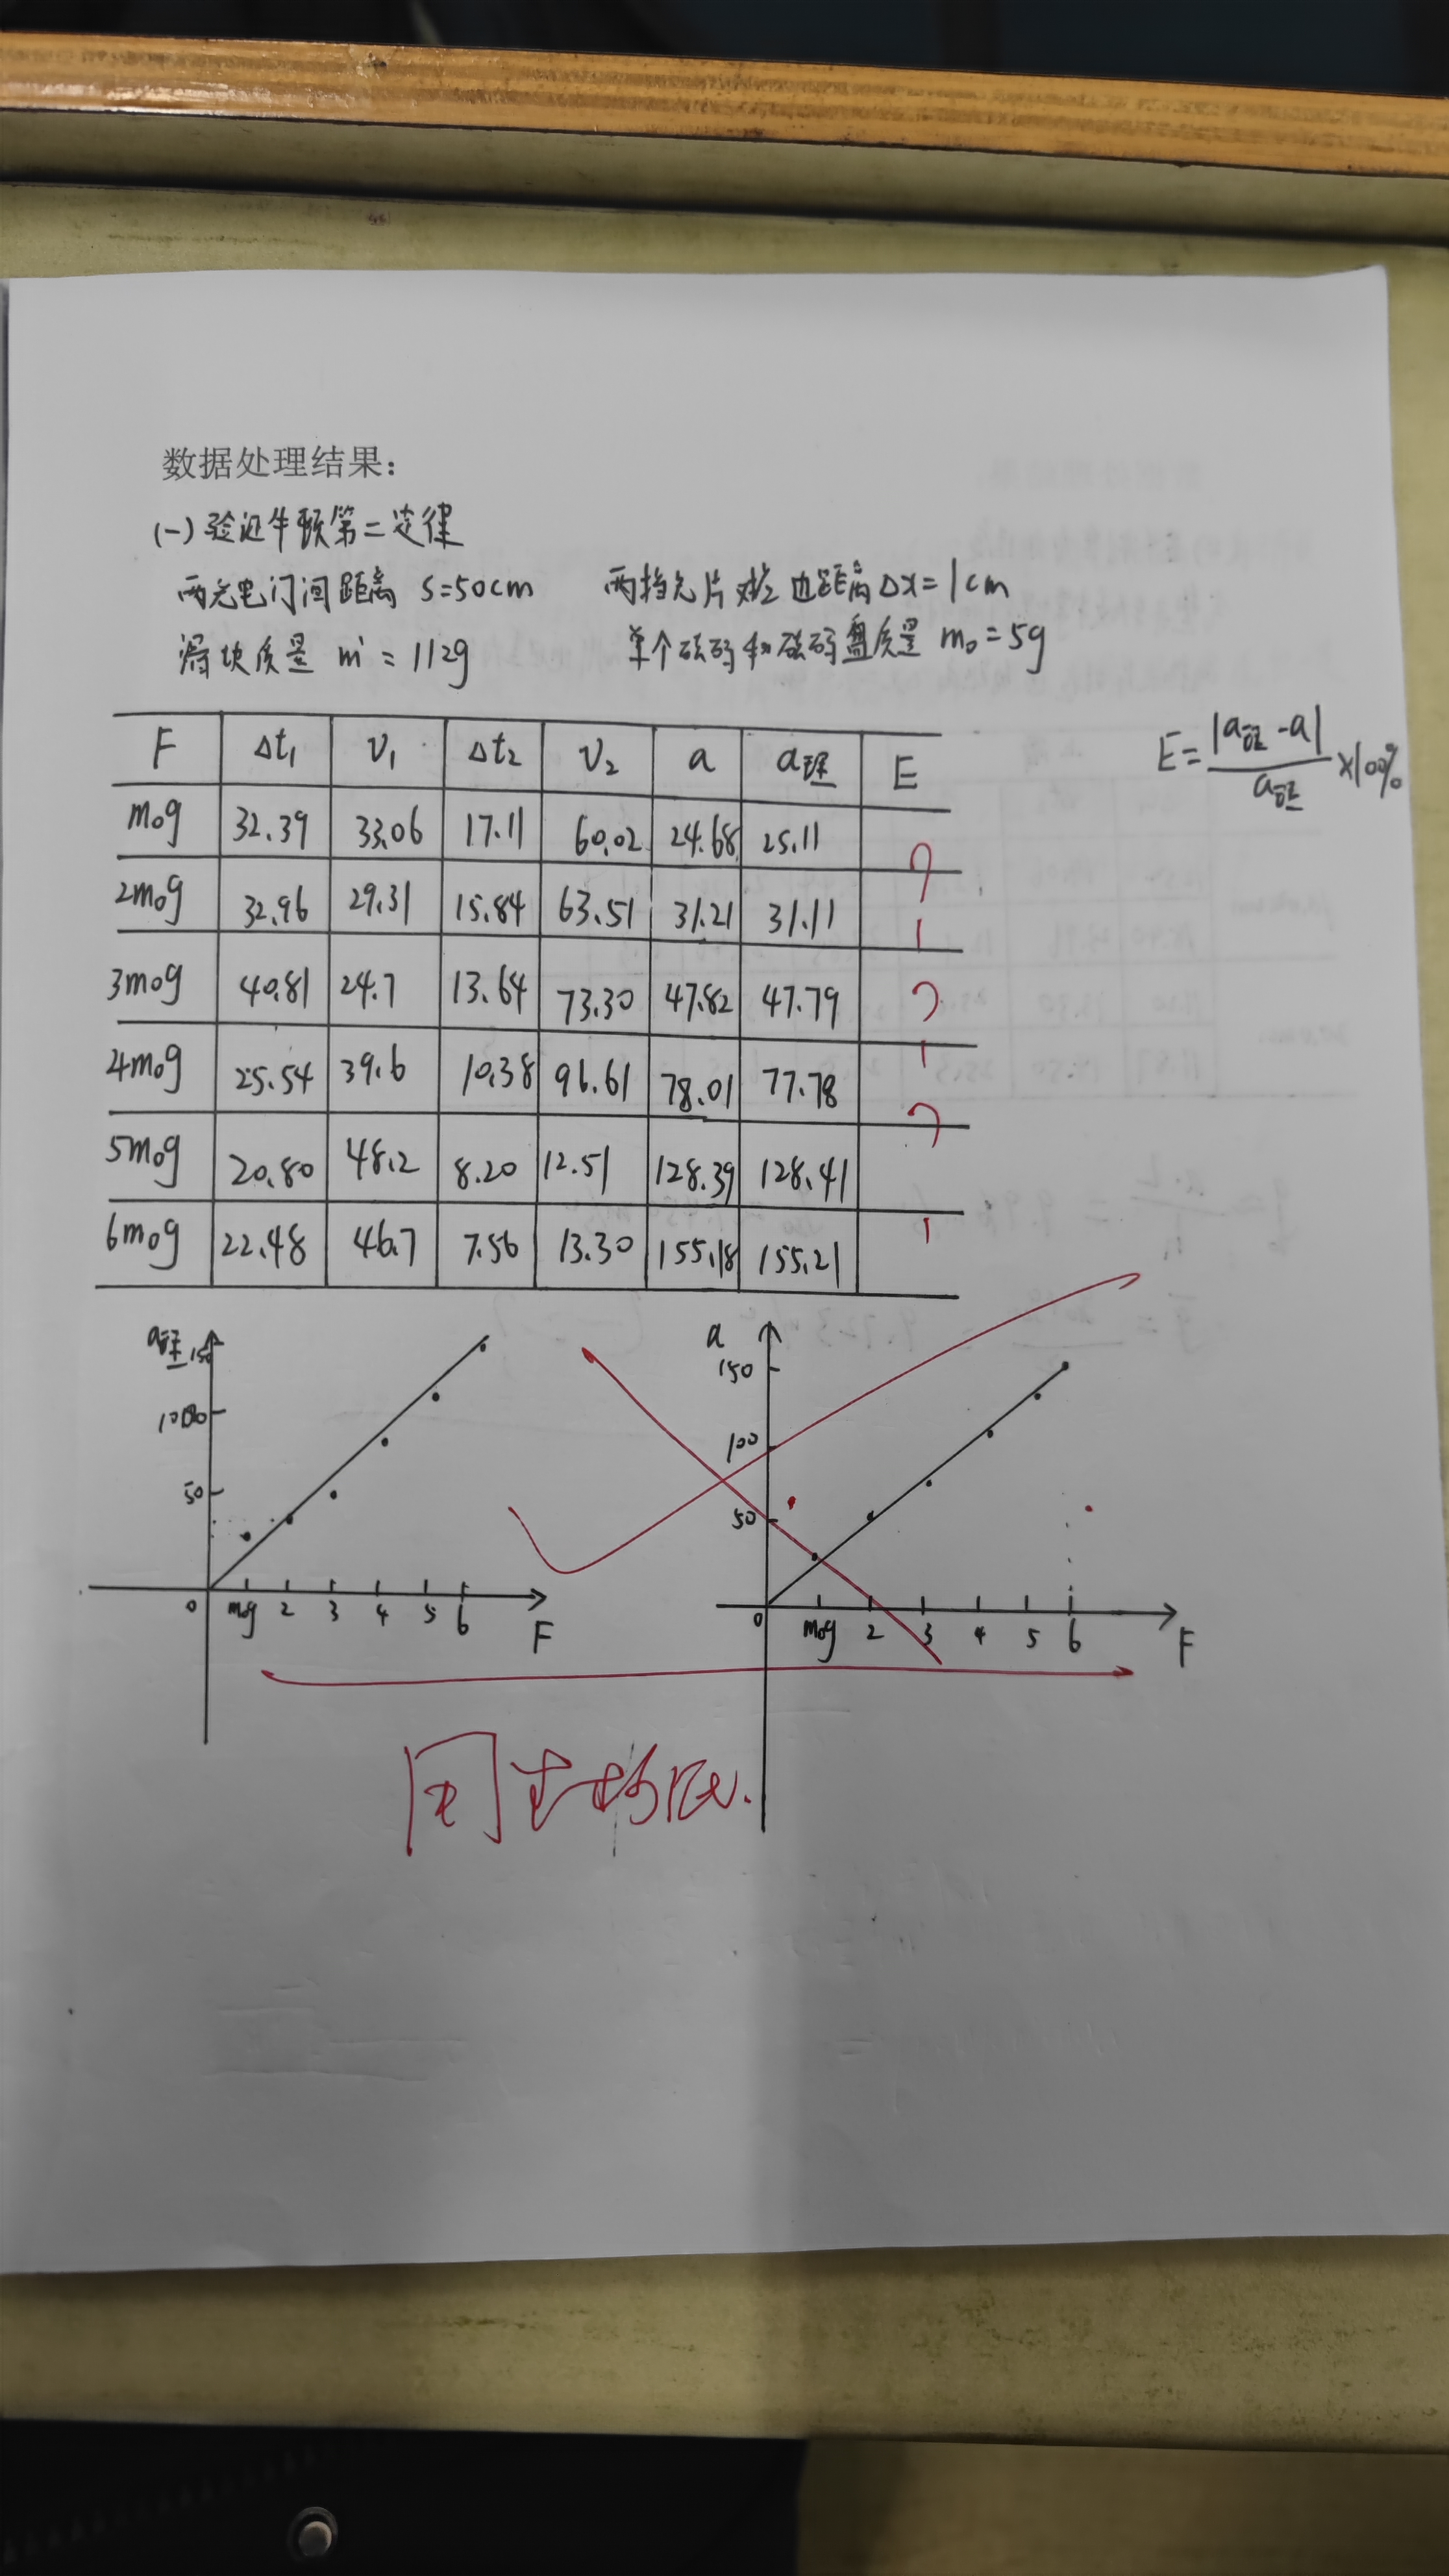 数据处理结果：
(一) 验证牛顿第二定律
两光电门间距离 S=50cm 两挡光片对应边距离Δx=1cm
滑块质量 m = 112g 单个砝码和砝码盘质量 m₀=5g
E=|a理-a|/a理 ×100%
F Δt₁ v₁ Δt₂ v₂ a a理 E
m₀g 32.39 33.06 17.11 60.02 24.68 25.11
2m₀g 32.96 29.31 15.84 63.51 31.21 31.11
3m₀g 40.81 24.7 13.64 73.30 47.82 47.79
4m₀g 25.54 39.6 10.38 96.61 78.01 77.78
5m₀g 20.80 48.2 8.20 12.51 128.39 128.41
6m₀g 22.48 46.7 7.56 13.30 155.18 155.21
? ? ?
a理 150
100
50
0 m₀g 2 3 4 5 6 F
a
150
100
50
0 m₀g 2 3 4 5 6 F